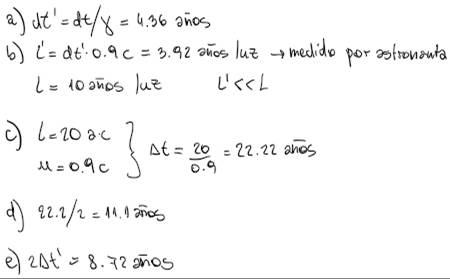 a) dt' = dt/γ = 4.36 años
b) L' = dt'·0.9c = 3.92 años luz → medido por astronauta
L = 10 años luz L' << L
c) L = 20 a·c
u = 0.9c } Δt = 20/0.9 = 22.22 años
d) 22.2/2 = 11.1 años
e) 2Δt' = 8.72 años